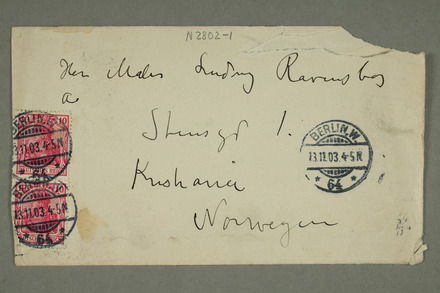 N 2802-1
Herr Maler Ludvig Ravensberg
Stensgd 1.
Kristiania
Norwegen
BERLIN.W.
13.11.03.4-5N
* 64 *
10
BERLIN.W.
13.11.03.4-5N
* 64 *
10
BERLIN.W.
13.11.03.4-5N
* 64 *